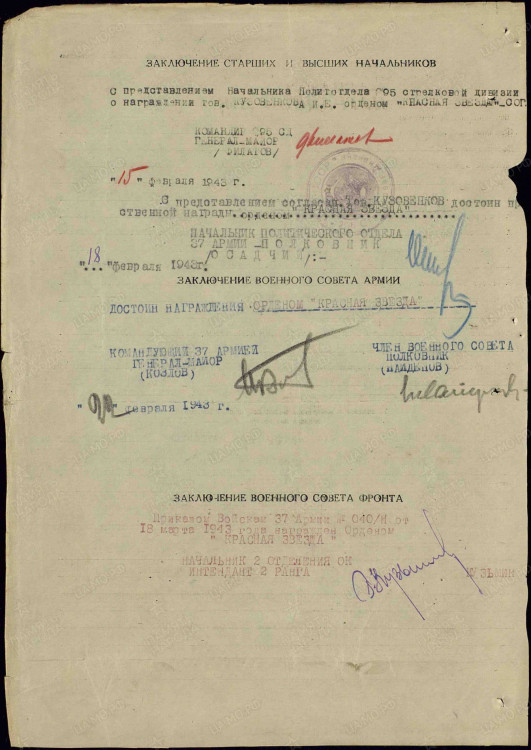 ЗАКЛЮЧЕНИЕ СТАРШИХ И ВЫСШИХ НАЧАЛЬНИКОВ
С представлением Начальника Политотдела 295 стрелковой дивизии
о награждении тов. КУЗОВЕНКОВА И.Е. орденом "КРАСНАЯ ЗВЕЗДА" СОГ
КОМАНДИР 295 СД
ГЕНЕРАЛ-МАЙОР
/ФИЛАТОВ/
"15" февраля 1943 г.
С представлением согласен Тов. КУЗОВЕНКОВ достоин пр
ственной награды орденом "КРАСНАЯ ЗВЕЗДА"
НАЧАЛЬНИК ПОЛИТИЧЕСКОГО ОТДЕЛА
37 АРМИИ - ПОЛКОВНИК
/ОСАДЧИЙ/:-
"18" февраля 1943г.
ЗАКЛЮЧЕНИЕ ВОЕННОГО СОВЕТА АРМИИ
ДОСТОИН НАГРАЖДЕНИЯ ОРДЕНОМ "КРАСНАЯ ЗВЕЗДА"
КОМАНДУЮЩИЙ 37 АРМИЕЙ
ГЕНЕРАЛ-МАЙОР
(КОЗЛОВ)
ЧЛЕН ВОЕННОГО СОВЕТА
ПОЛКОВНИК
(НАЙДЕНОВ)
"22" февраля 1943 г.
ЗАКЛЮЧЕНИЕ ВОЕННОГО СОВЕТА ФРОНТА
Приказом Войскам 37 Армии № 040/Н от
18 марта 1943 года награжден Орденом
" КРАСНАЯ ЗВЕЗДА "
НАЧАЛЬНИК 2 ОТДЕЛЕНИЯ ОК
ИНТЕНДАНТ 2 РАНГА
КУЗЬМИН